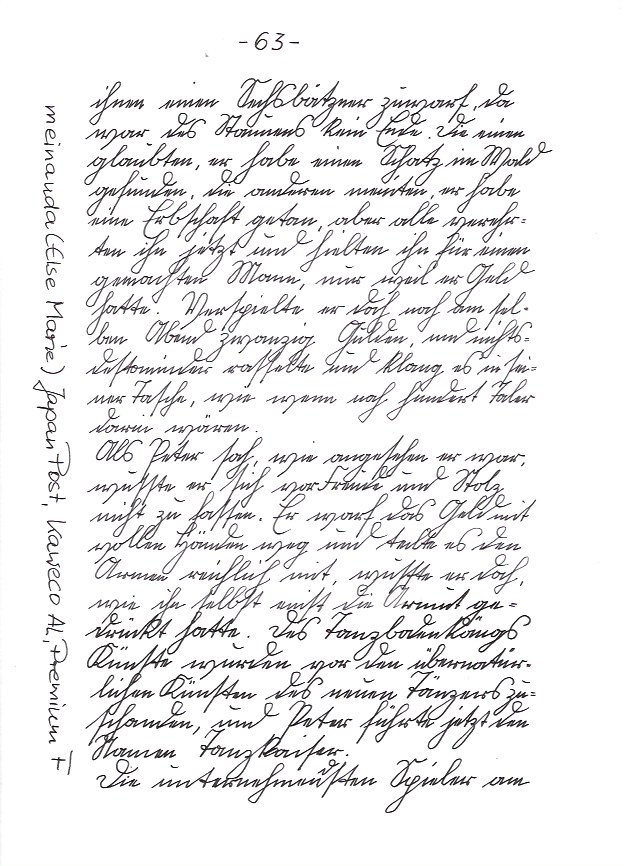 -63-
ihnen einen Sechsbätzner zuwarf, da
war des Staunens kein Ende. Die einen
glaubten, er habe einen Schatz im Wald
gefunden, die anderen meinten, er habe
eine Erbschaft getan, aber alle verehr-
ten ihn jetzt und hielten ihn für einen
gemachten Mann, nur weil er Geld
hatte. Verspielte er doch noch am sel-
ben Abend zwanzig Gulden, und nichts-
destominder rasselte und klang es in sei-
ner Tasche, wie wenn noch hundert Taler
darin wären.
Als Peter sah, wie angesehen er war,
wusste er sich vor Freude und Stolz
nicht zu fassen. Er warf das Geld mit
vollen Händen weg und teilte es den
Armen reichlich mit, wusste er doch,
wie ihn selbst einst die Armut ge-
drückt hatte. Des Tanzbodenkönigs
Künste wurden vor den übernatür-
lichen Künsten des neuen Tänzers zu-
schanden, und Peter führte jetzt den
Namen Tanzkaiser.
Die unternehmendsten Spieler am
meinauda (Else Marie) Japan Post, Kaweco AL, Premium F